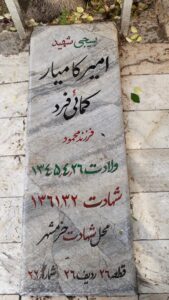 بسیجی شهید
امیر کامیار
کمائی فرد
فرزند محمود
ولادت ۱۳۴۵٫۴٫۲۶
شهادت ۱۳۶۱٫۳٫۲
محل شهادت خرمشهر
قطعه ۲۶ ردیف ۲۶ شماره ۲۲